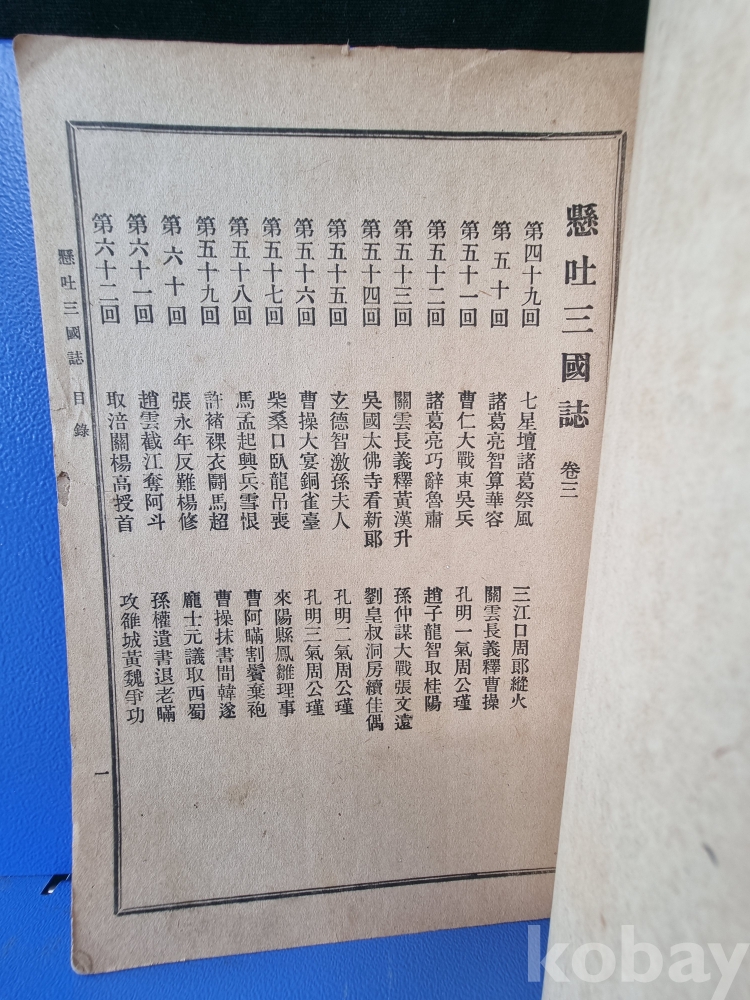 懸吐三國誌 卷三
第四十九回 七星壇諸葛祭風 三江口周郞縱火
第五十回 諸葛亮智算華容 關雲長義釋曹操
第五十一回 曹仁大戰東吳兵 孔明一氣周公瑾
第五十二回 諸葛亮巧辭魯肅 趙子龍智取桂陽
第五十三回 關雲長義釋黃漢升 孫仲謀大戰張文遠
第五十四回 吳國太佛寺看新郞 劉皇叔洞房續佳偶
第五十五回 玄德智激孫夫人 孔明二氣周公瑾
第五十六回 曹操大宴銅雀臺 孔明三氣周公瑾
第五十七回 柴桑口臥龍吊喪 來陽縣鳳雛理事
第五十八回 馬孟起興兵雪恨 曹阿瞞割鬚棄袍
第五十九回 許褚裸衣鬪馬超 曹操抹書間韓遂
第六十回 張永年反難楊修 龐士元議取西蜀
第六十一回 趙雲截江奪阿斗 孫權遺書退老瞞
第六十二回 取涪關楊高授首 攻雒城黃魏爭功
懸吐三國誌 目錄
一
kobay